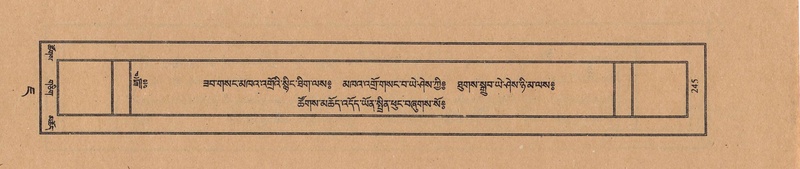 ཟབ་གསང་མཁའ་འགྲོའི་སྙིང་ཐིག་ལས༔ མཁའ་འགྲོ་གསང་བ་ཡེ་ཤེས་ཀྱི༔ ཐུགས་སྒྲུབ་ཡེ་ཤེས་ཉི་མ་ལས༔
ཚོགས་མཆོད་འདོད་ཡོན་སྤྲིན་ཕུང་བཞུགས་སོ༔
245